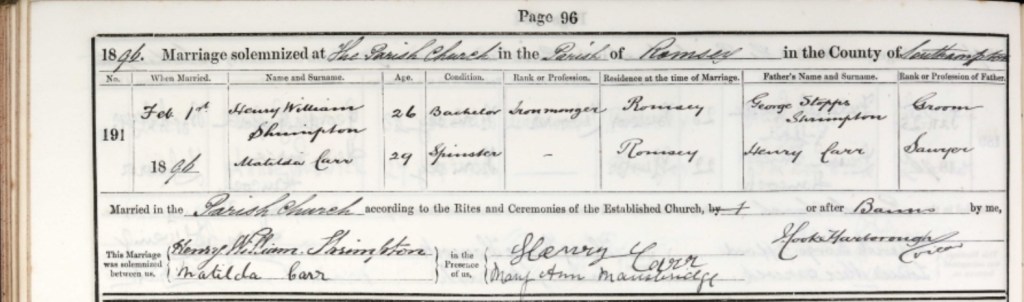 Page 96
1896. Marriage solemnized at The Parish Church in the Parish of Romsey in the County of Southampton
No. When Married. Name and Surname. Age. Condition. Rank or Profession. Residence at the time of Marriage. Father's Name and Surname. Rank or Profession of Father.
191 Feb 1st 1896 Henry William Shrimpton 26 Bachelor Ironmonger Romsey George Stopps Shrimpton Groom
Matilda Carr 29 Spinster — Romsey Henry Carr Sawyer
Married in the Parish Church according to the Rites and Ceremonies of the Established Church, by or after Banns by me,
This Marriage was solemnized between us, Henry William Shrimpton in the Presence of us, Henry Carr
Matilda Carr Mary Ann